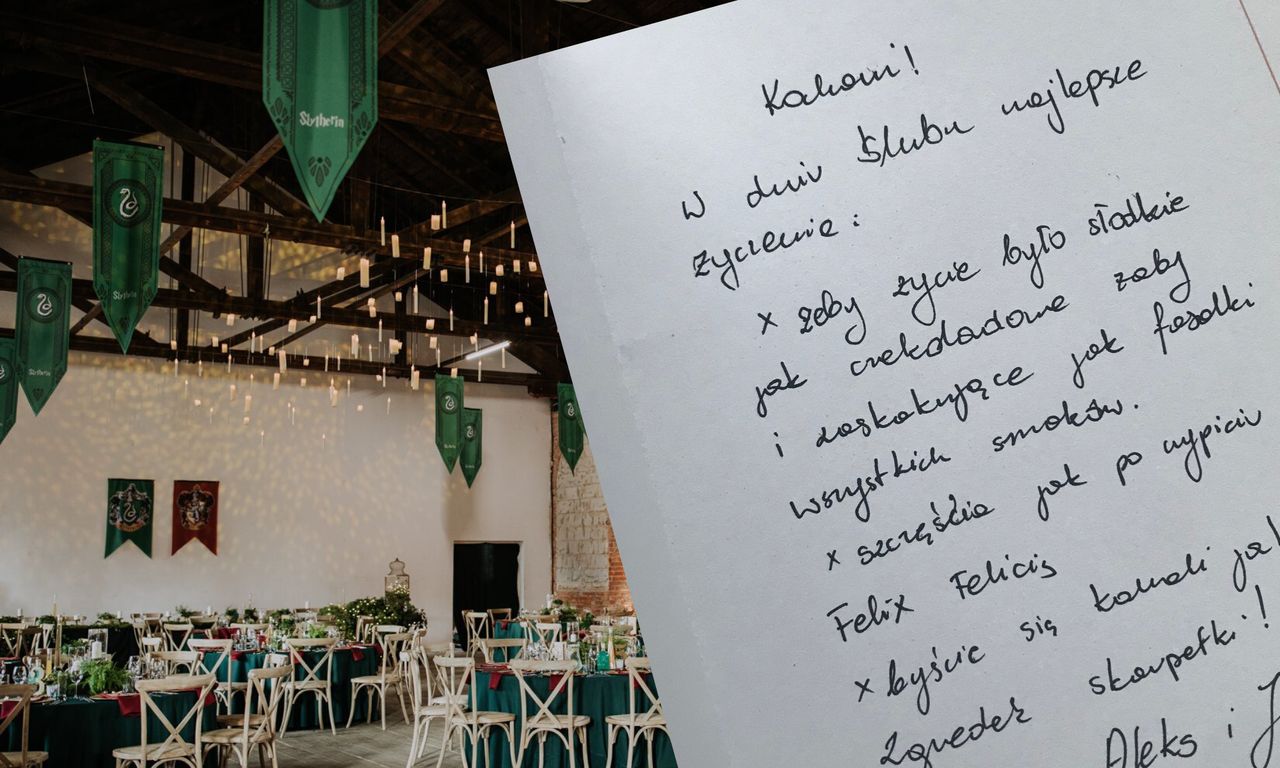 Slytherin
Slytherin
Slytherin
Kochani!
W dniu Ślubu najlepsze
życzenia:
x żeby życie było słodkie
jak czekoladowe żaby
i zaskakujące jak fasolki
wszystkich smaków.
x szczęścia jak po wypiciu
Felix Felicis
x byście się kochali jak
Zgredek skarpetki!
Aleks i